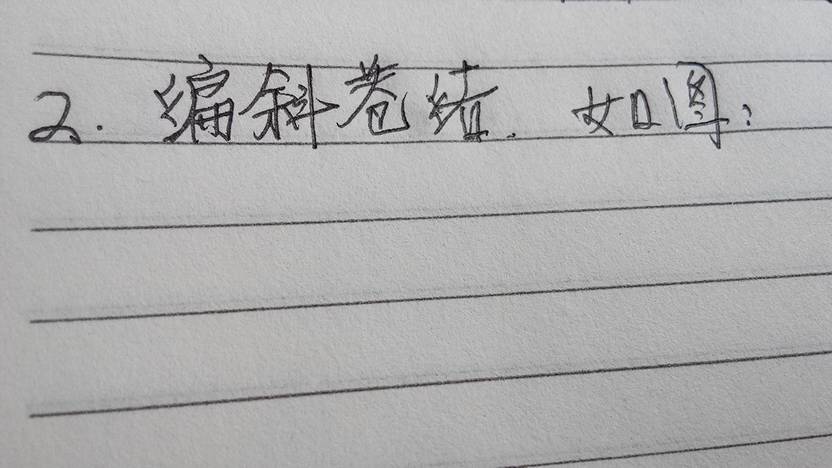 2. 编斜卷结. 如图: